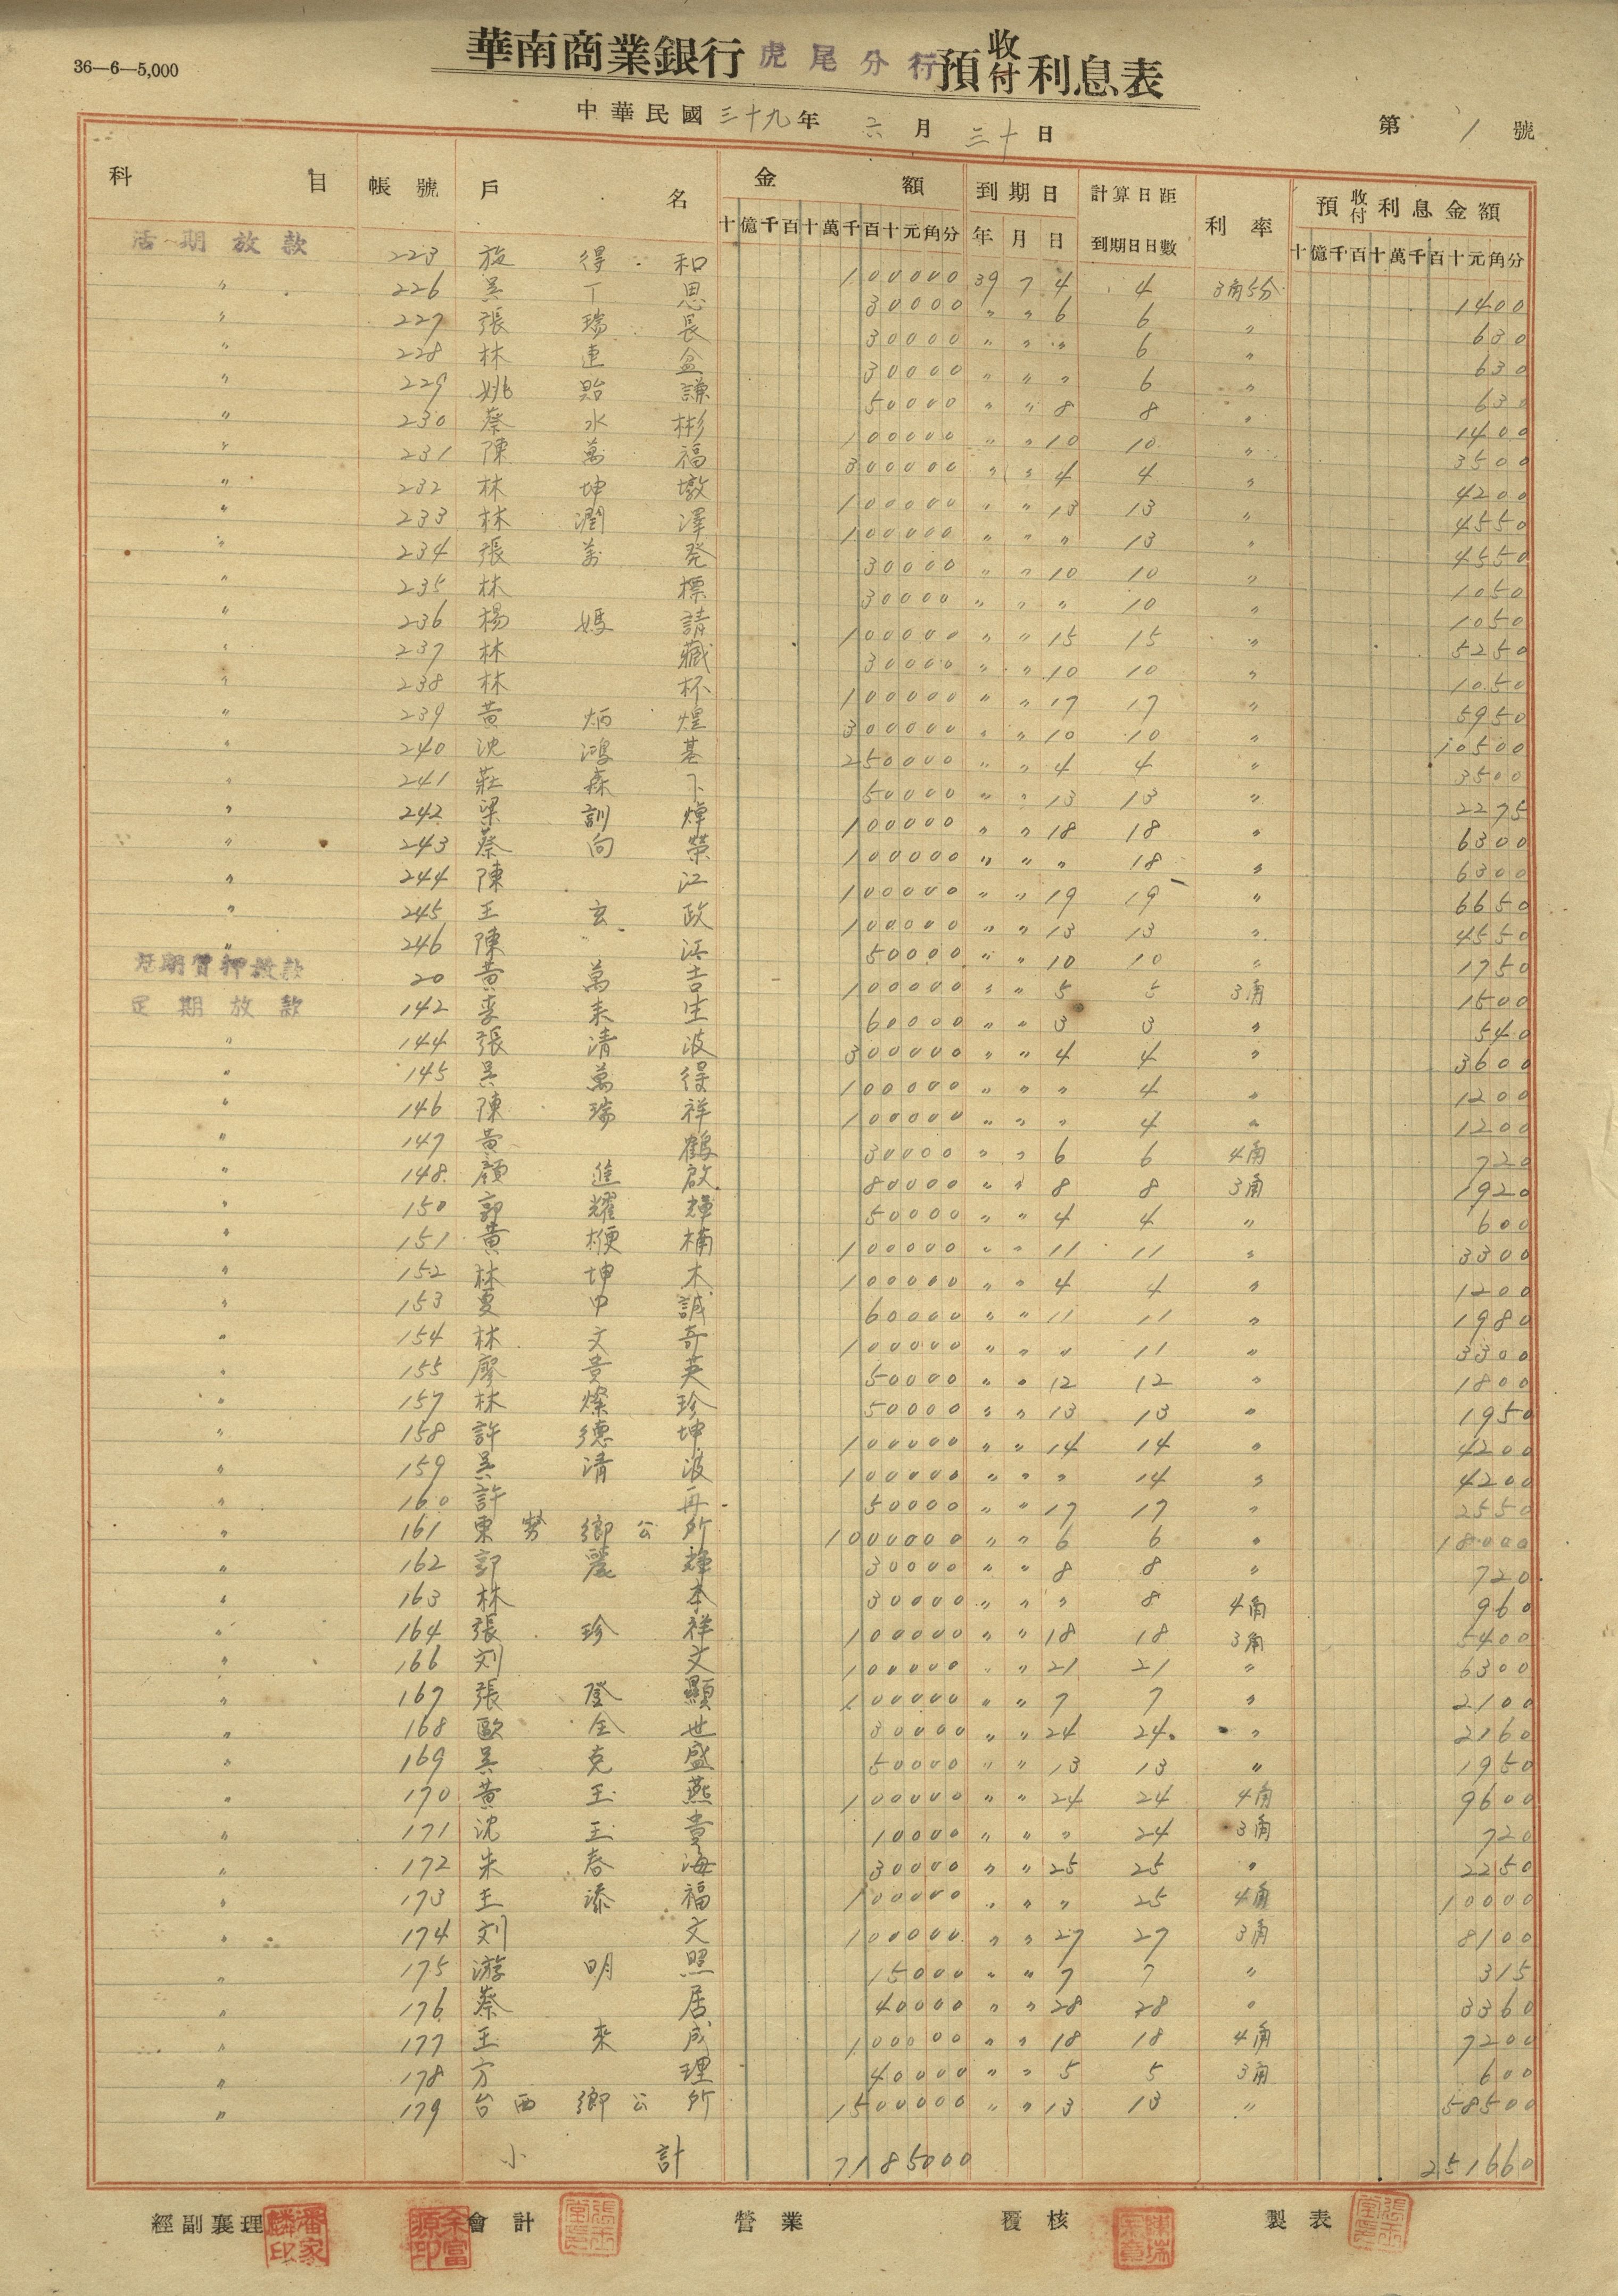 36—6—5,000
華南商業銀行 虎尾分行 預收付利息表
中華民國三十九年 六月 三十日
第 1 號
科目 帳號 戶名 金額 到期日 計算日距到期日日數 利率 預收付利息金額
十億千百十萬千百十元角分 年 月 日 十億千百十萬千百十元角分
活期放款 223 施得和 100000 39 7 4 4 3角5分 1400
〃 226 吳丁恩 30000 〃 〃 6 6 〃 630
〃 227 張瑞長 30000 〃 〃 〃 6 〃 630
〃 228 林連盆 30000 〃 〃 〃 6 〃 630
〃 229 姚貽謙 50000 〃 〃 8 8 〃 1400
〃 230 蔡水彬 100000 〃 〃 10 10 〃 3500
〃 231 陳萬福 300000 〃 〃 4 4 〃 4200
〃 232 林坤墩 100000 〃 〃 13 13 〃 4550
〃 233 林潤澤 100000 〃 〃 〃 13 〃 4550
〃 234 張萬発 30000 〃 〃 10 10 〃 1050
〃 235 林標 30000 〃 〃 〃 10 〃 1050
〃 236 楊媽請 100000 〃 〃 15 15 〃 5250
〃 237 林藏 30000 〃 〃 10 10 〃 1050
〃 238 林杯 100000 〃 〃 17 17 〃 5950
〃 239 黃炳煌 300000 〃 〃 10 10 〃 10500
〃 240 沈鴻基 250000 〃 〃 4 4 〃 3500
〃 241 莊森下 50000 〃 〃 13 13 〃 2275
〃 242 梁訓焯 100000 〃 〃 18 18 〃 6300
〃 243 蔡向榮 100000 〃 〃 〃 18 〃 6300
〃 244 陳江 100000 〃 〃 19 19 〃 6650
〃 245 王玄政 100000 〃 〃 13 13 〃 4550
〃 246 陳 50000 〃 〃 10 10 〃 1750
活期質押放款 20 黃萬吉 100000 〃 〃 5 5 3角 1500
定期放款 142 李来生 60000 〃 〃 3 3 〃 540
〃 144 張清波 300000 〃 〃 4 4 〃 3600
〃 145 吳萬得 100000 〃 〃 〃 4 〃 1200
〃 146 陳瑞祥 100000 〃 〃 〃 4 〃 1200
〃 147 黃鶴 30000 〃 〃 6 6 4角 720
〃 148 顏進啟 80000 〃 〃 8 8 3角 1920
〃 150 郭耀輝 50000 〃 〃 4 4 〃 600
〃 151 黃楩楠 100000 〃 〃 11 11 〃 3300
〃 152 林坤木 100000 〃 〃 4 4 〃 1200
〃 153 夏中誠 60000 〃 〃 11 11 〃 1980
〃 154 林文奇 100000 〃 〃 〃 11 〃 3300
〃 155 廖貴英 50000 〃 〃 12 12 〃 1800
〃 157 林燦珍 50000 〃 〃 13 13 〃 1950
〃 158 許德坤 100000 〃 〃 14 14 〃 4200
〃 159 吳清波 100000 〃 〃 〃 14 〃 4200
〃 160 許再 50000 〃 〃 17 17 〃 2550
〃 161 東勢鄉公所 1000000 〃 〃 6 6 〃 18000
〃 162 郭麗輝 30000 〃 〃 8 8 〃 720
〃 163 林本 30000 〃 〃 〃 8 4角 960
〃 164 張珍祥 100000 〃 〃 18 18 3角 5400
〃 166 刘文 100000 〃 〃 21 21 〃 6300
〃 167 張登顯 100000 〃 〃 7 7 〃 2100
〃 168 歐全世 30000 〃 〃 24 24 〃 2160
〃 169 吳克盛 50000 〃 〃 13 13 〃 1950
〃 170 黃玉燕 100000 〃 〃 24 24 4角 9600
〃 171 沈玉貴 10000 〃 〃 〃 24 3角 720
〃 172 朱春海 30000 〃 〃 25 25 〃 2250
〃 173 王添福 100000 〃 〃 〃 25 4角 10000
〃 174 刘文 100000 〃 〃 27 27 3角 8100
〃 175 游明照 15000 〃 〃 7 7 〃 315
〃 176 蔡居 40000 〃 〃 28 28 〃 3360
〃 177 王來成 100000 〃 〃 18 18 4角 7200
〃 178 方理 40000 〃 〃 5 5 3角 600
〃 179 台西鄉公所 1500000 〃 〃 13 13 〃 58500
小計 7185000 251660
經副襄理 潘家麟印 余富源印 會計 營業 覆核 製表